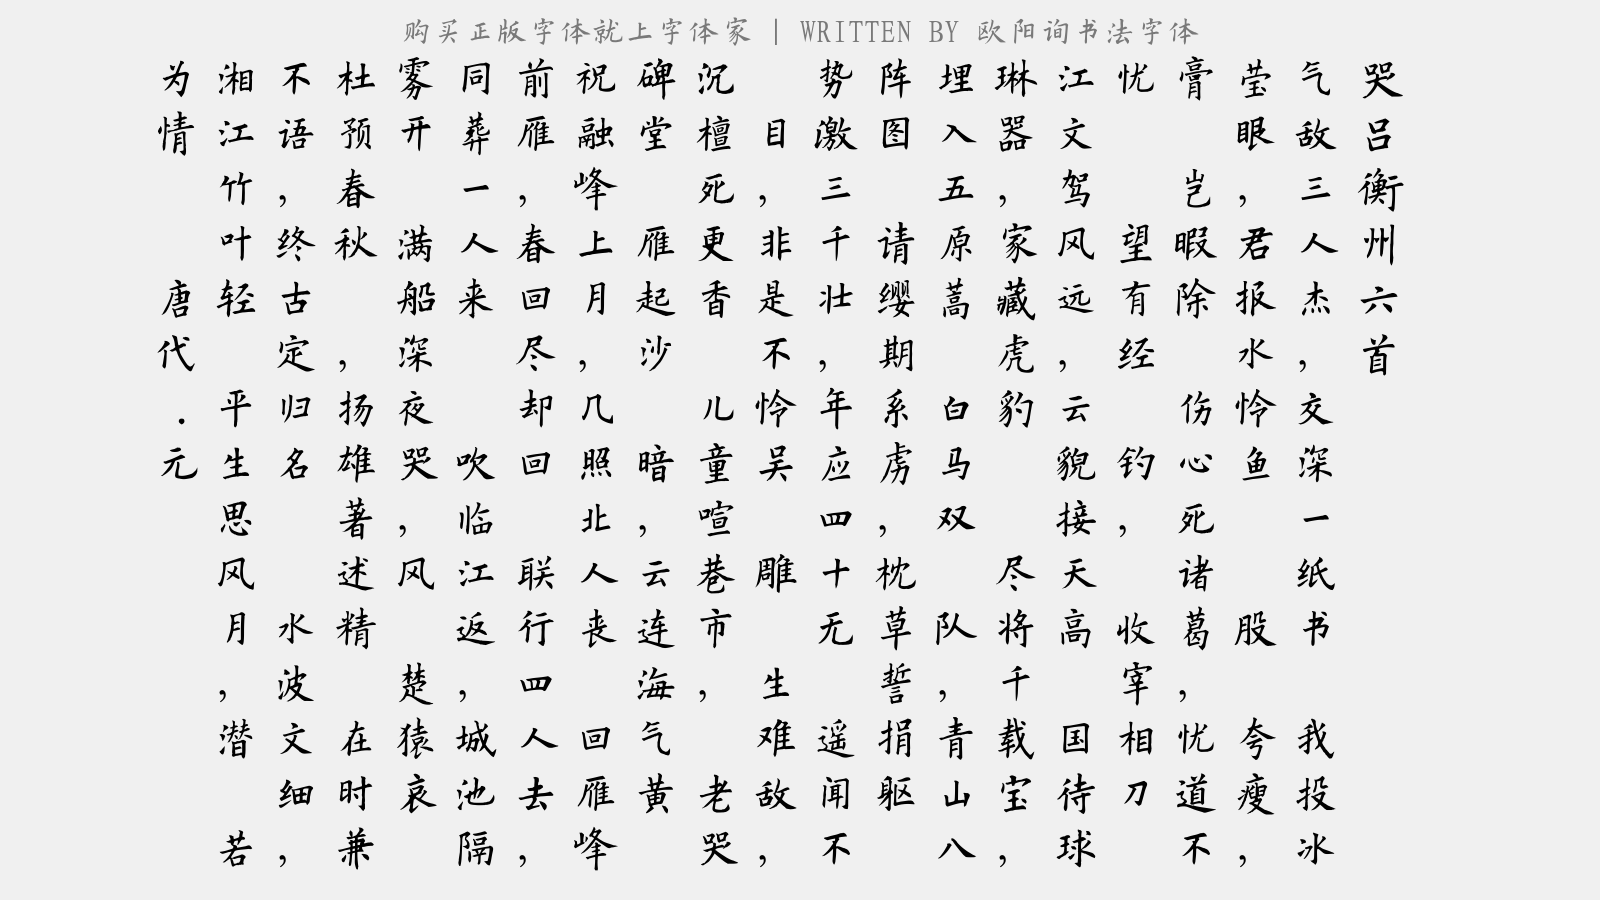 购买正版字体就上字体家 | WRITTEN BY 欧阳询书法字体
哭吕衡州六首
气敌三人杰，交深一纸书 我投冰
莹眼，君报水怜鱼 股夸瘦，
膏 岂暇除 伤心死诸葛，忧道不
忧 望有经 钓，收宰相刀
江文驾风远，云貌接天高国待球
琳器，家藏虎豹 尽将千载宝，
埋入五原蒿 白马双 队青山八
阵图 请缨期系虏，枕草誓捐躯
势激三千壮，年应四十无 遥闻不
目，非是不怜吴 雕 生难敌，
沉檀死更香 儿童喧巷市 老哭
碑堂 雁起沙 暗，云连海气黄
祝融峰上月，几照北人丧 回雁峰
前，春回尽却回 联行四人去，
同葬一人来 吹临江返，城池隔
雾开 满船深夜哭，风 楚猿哀
杜预春秋 ，扬雄著述精 在时兼
不语，终古定归名 水波文细，
湘江竹叶轻 平生思风月，潜 若
为情 唐代．元